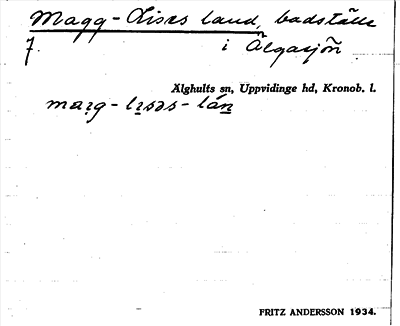 Magg-Lisas land, badställe
7. i Älgasjön
Älghults sn, Uppvidinge hd, Kronob. l.
maig-lisəs-lán
FRITZ ANDERSSON 1934.